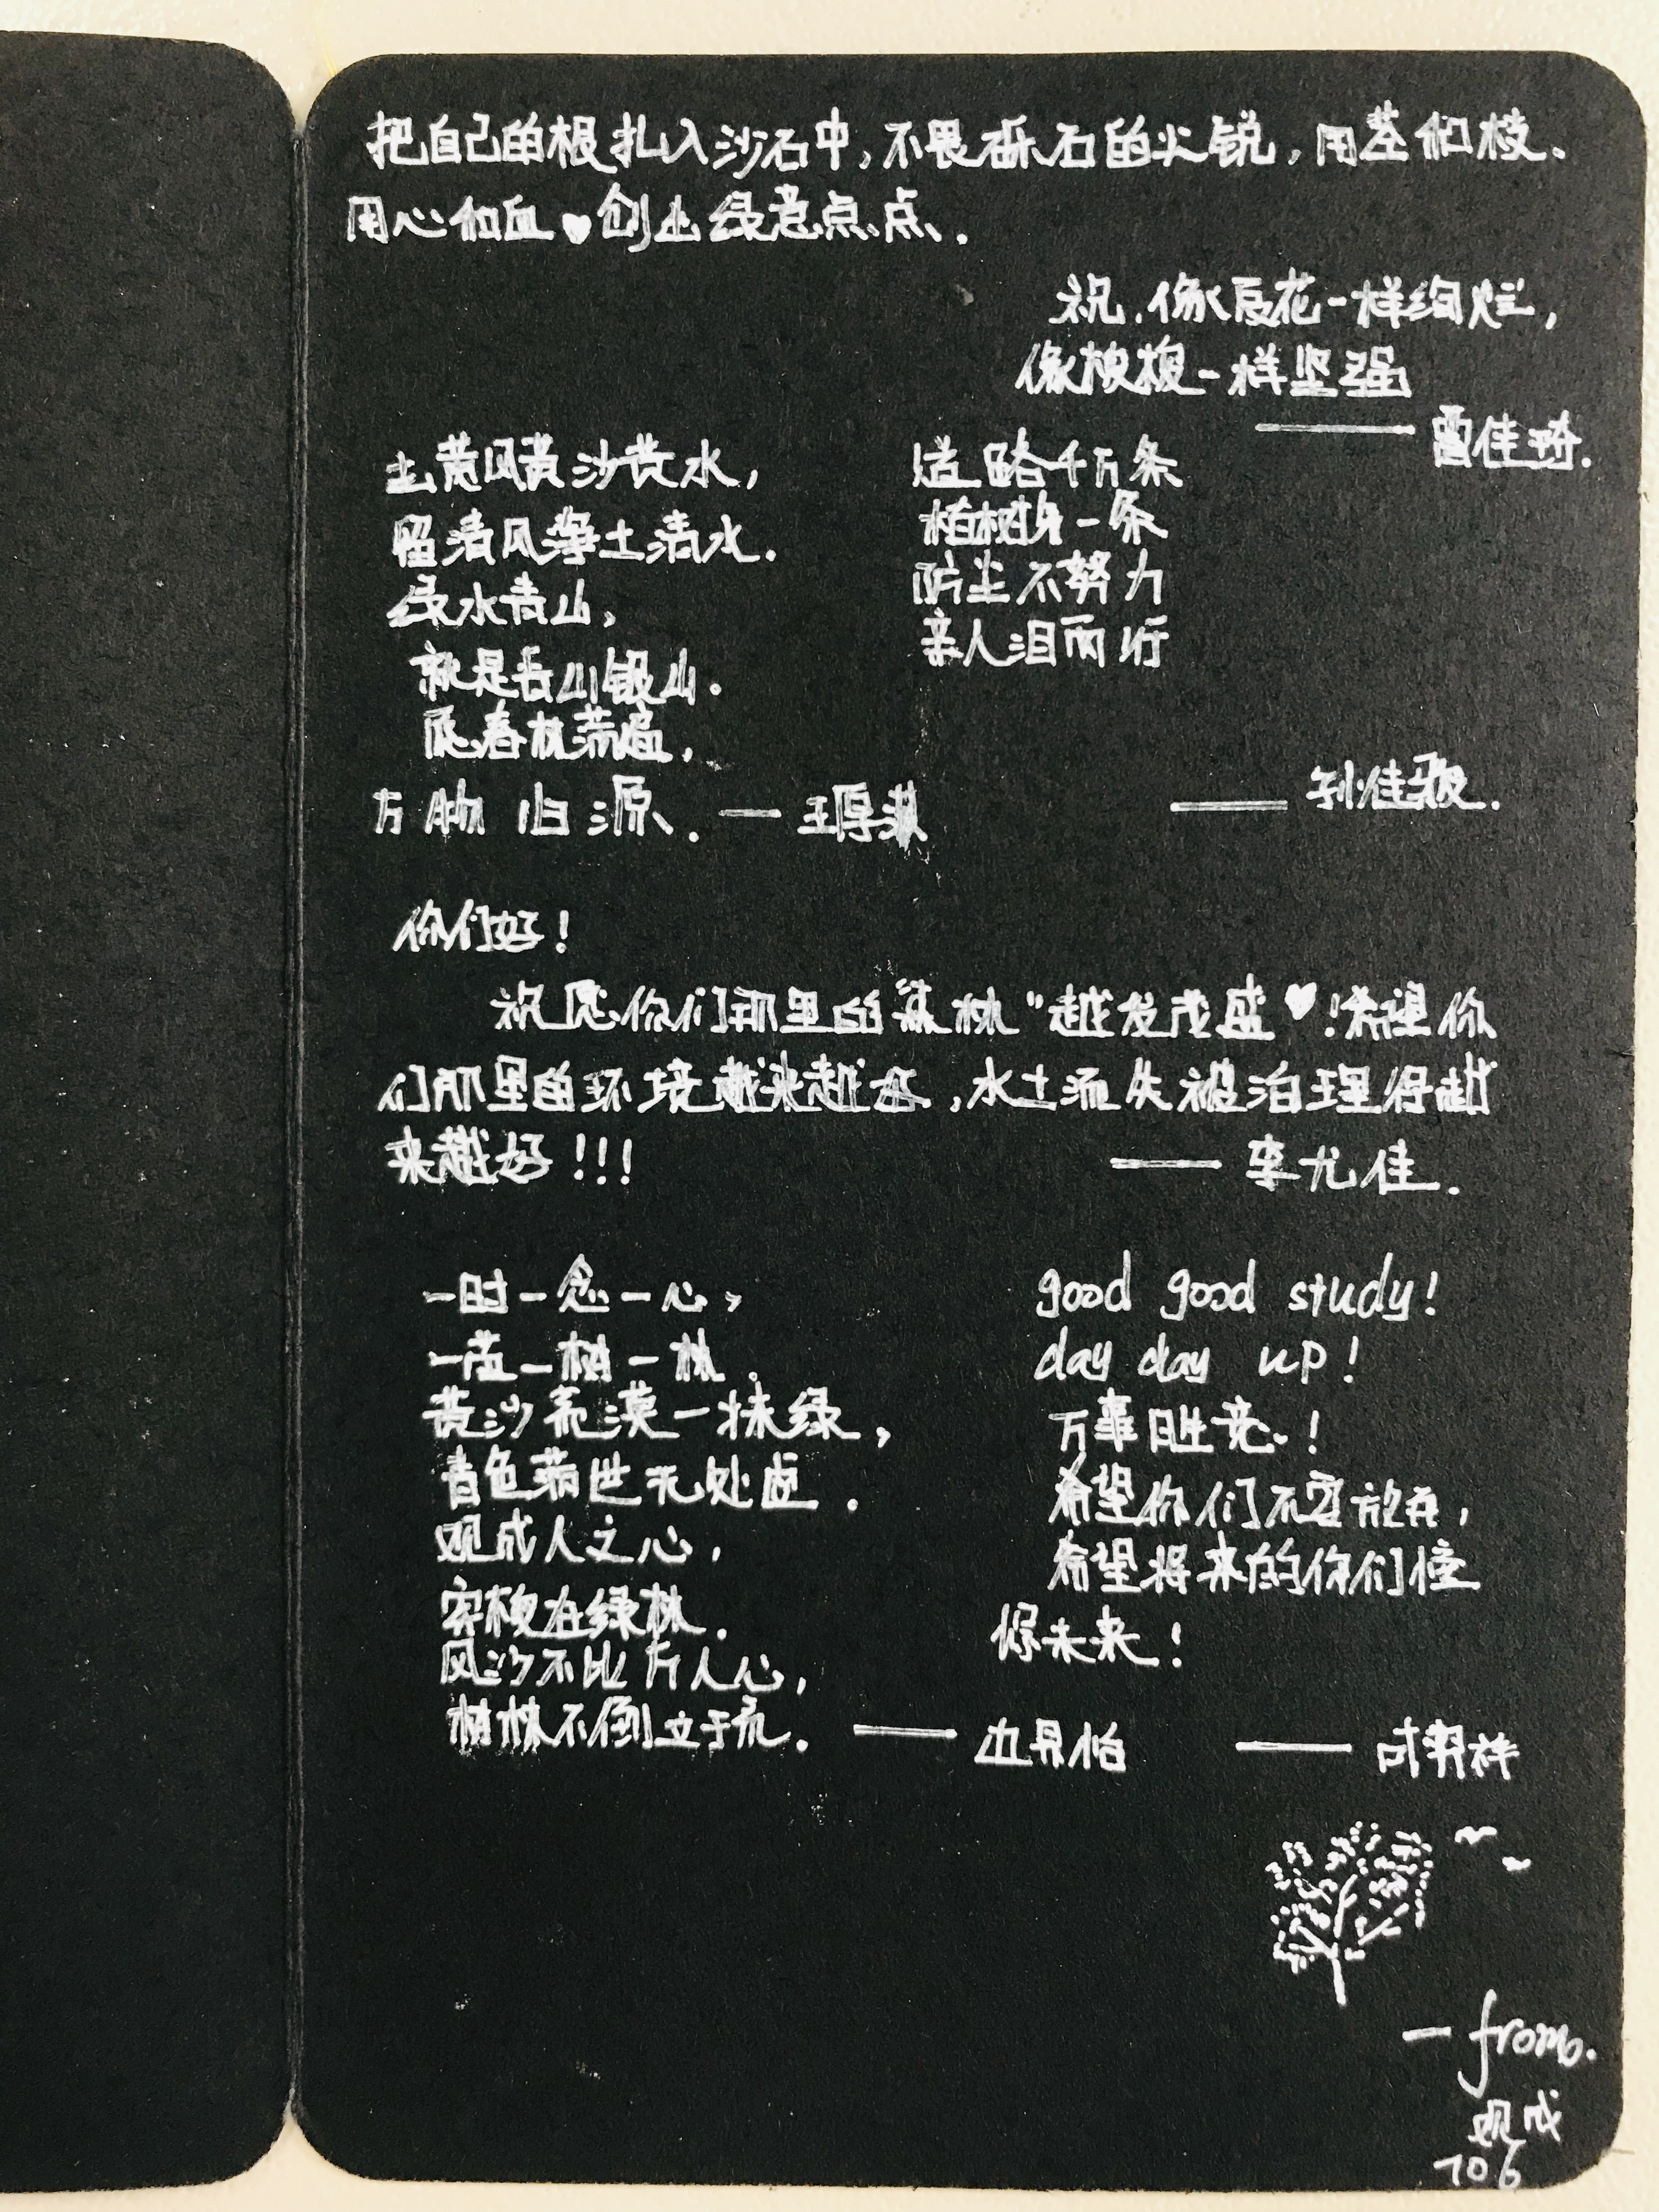 把自己的根扎入沙石中,不畏砾石的尖锐,用茎和枝、
用心和血♥创出绿意点点.
祝,像夏花一样绚烂,
像梭梭一样坚强
——雷佳琦.
去黄风黄沙黄水,
留清风净土清水.
绿水青山,
就是金山银山.
愿春林荡遍,
万物归源. —王厚淇
道路千万条
植树第一条
防尘不努力
亲人泪两行
——孙佳骏.
你们好!
祝愿你们那里的森林"越发茂盛♥!希望你
们那里的环境越来越好,水土流失被治理得越
来越好!!!
——李尤佳.
一时一念一心,
一苗一树一林.
黄沙荒漠一抹绿,
青色荡世无处虚.
观成人之心,
寄梭在绿林.
风沙不比万人心,
树林不倒立于荒. ——
good good study!
day day up!
万事胜意!
希望你们不要放弃,
希望将来的你们憧
憬未来!
——
— from.
观成
706